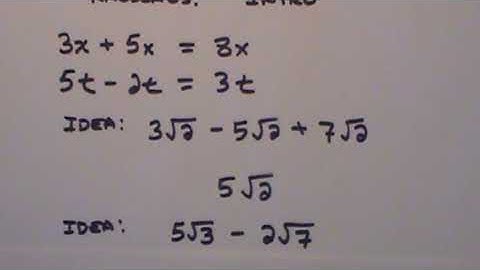 3x + 5x = 8x
5t - 2t = 3t
IDEA: 3√2 - 5√2 + 7√2
5√2
IDEA: 5√3 - 2√7